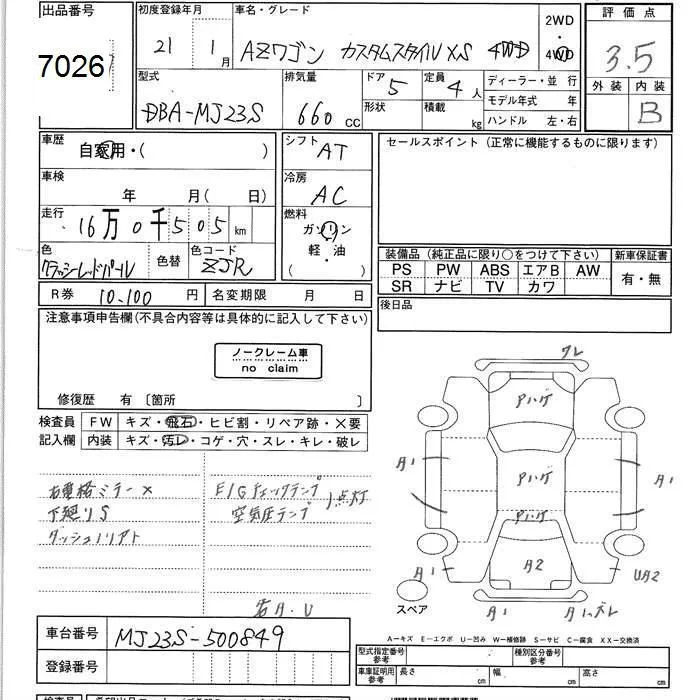 出品番号
7026
初度登録年月
21 1月
車名・グレード
AZワゴン カスタムスタイルXS 4WD
2WD
4WD
評価点
3.5
外装 内装
B
型式
DBA-MJ23S
排気量
660 CC
ドア 5
形状
定員 4人
積載 kg
ディーラー・並 行
モデル年式 年
ハンドル 左・右
車歴
自家用・( )
シフト AT
セールスポイント(正常に機能するものに限ります)
車検
年 月(日)
冷房 AC
走行
16万0千505 km
燃料
ガソリン
軽・油
( )
色
色替
色コード
ZJR
装備品(純正品に限り○をつけて下さい)
新車保証書
PS PW ABS エアB AW
SR ナビ TV カワ
有・無
R券 10,100 円
名変期限 月 日
後日品
注意事項申告欄(不具合内容等は具体的に記入して下さい)
ノークレーム車
no claim
修復歴 有 〔箇所 〕
検査員
記入欄
FW キズ・飛石・ヒビ割・リペア跡・×要
内装 キズ・汚レ・コゲ・穴・スレ・キレ・破レ
右電格ミラー×
下廻りS
E/Gチェックランプ
空気圧ランプ
1点灯
各A・U
ワレ
アハゲ
アハゲ
アハゲ
A1
A1
A2
A1
UA2
A1
A1ズレ
スペア
車台番号
MJ23S-500849
登録番号
A-キズ E-エクボ U-凹み W-補修跡 S-サビ C-腐食 XX-交換済
型式指定番号
参考
種別区分番号
参考
車庫証明用
参考
長さ cm
幅 cm
高さ cm